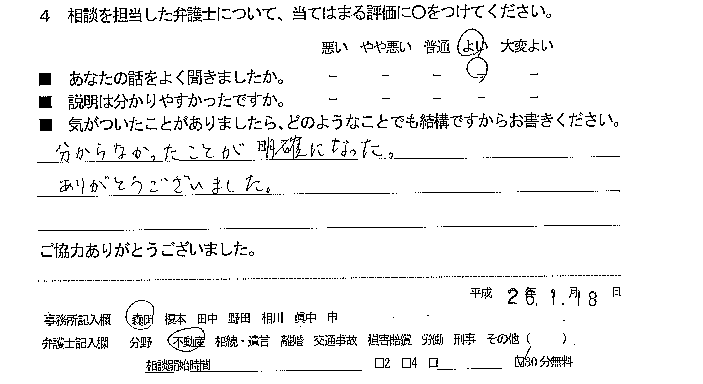 4 相談を担当した弁護士について、当てはまる評価に〇をつけてください。
悪い やや悪い 普通 よい 大変よい
■ あなたの話をよく聞きましたか。 － － － － －
■ 説明は分かりやすかったですか。 － － － － －
■ 気がついたことがありましたら、どのようなことでも結構ですからお書きください。
分からなかったことが明確になった。
ありがとうございました。
ご協力ありがとうございました。
平成 26年 9月 18日
事務所記入欄 森田 榎本 田中 野田 相川 眞中 申
弁護士記入欄 分野 不動産 相続・遺言 離婚 交通事故 損害賠償 労働 刑事 その他（ ）
相談開始時間 □2 □4 ☑30分無料